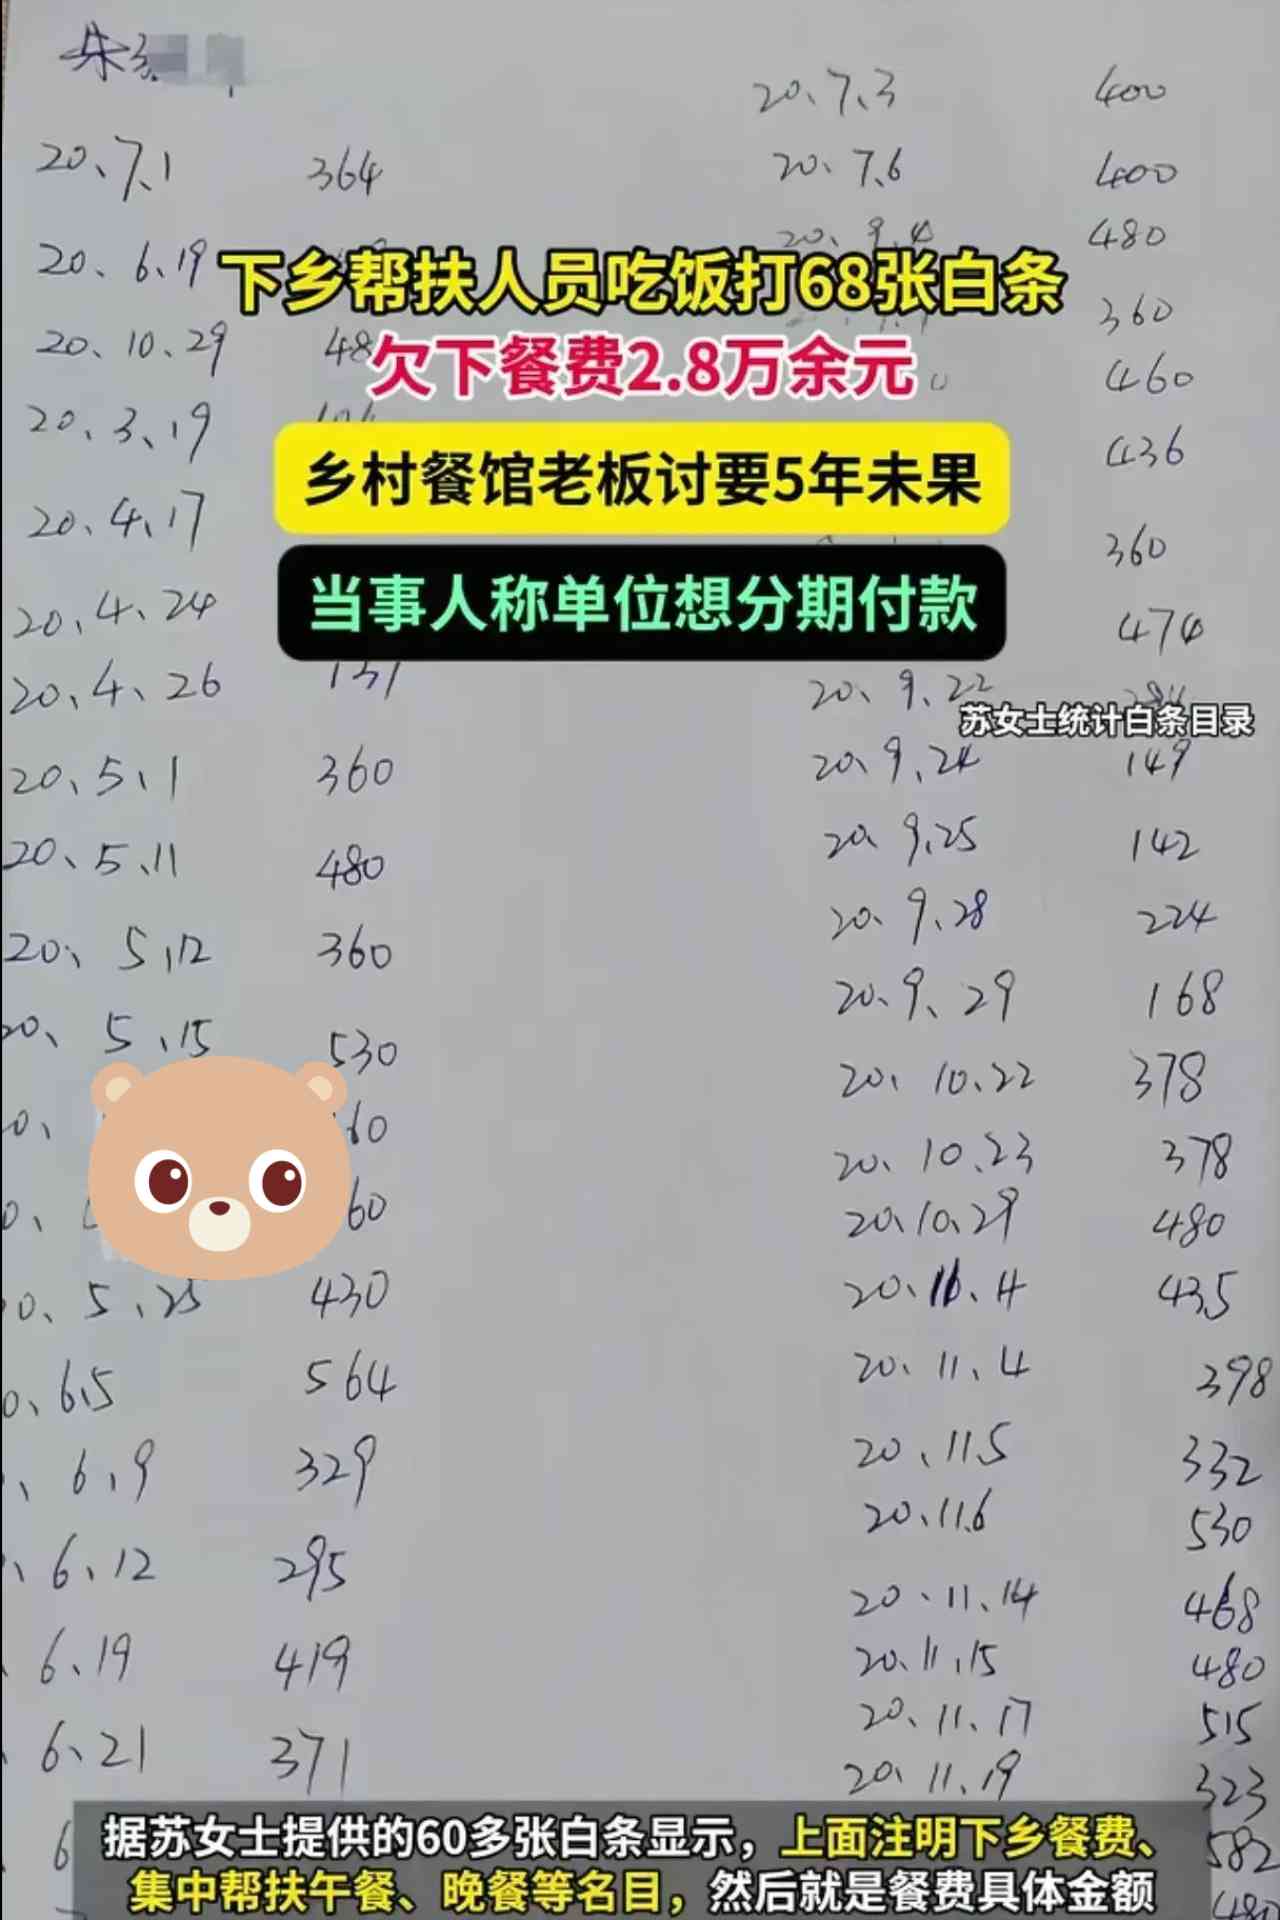 朱
20、7、1 364
20、6、19
20、10、29 48
20、3、19
20、4、17
20、4、24
20、4、26 131
20、5、1 360
20、5、11 480
20、5、12 360
20、5、15 530
0、 60
0、 60
0、5、25 430
0、6、5 564
、6、9 329
、6、12 295
、6、19 419
、6、21 371
6
20、7、3 400
20、7、6 400
20、9、4 480
360
460
436
360
474
20、9、22
20、9、24 149
20、9、25 142
20、9、28 224
20、9、29 168
20、10、22 378
20、10、23 378
20、10、29 480
20、11、4 435
20、11、4 398
20、11、5 332
20、11、6 530
20、11、14 468
20、11、15 480
20、11、17 515
20、11、19 323
582
480
下乡帮扶人员吃饭打68张白条
欠下餐费2.8万余元
乡村餐馆老板讨要5年未果
当事人称单位想分期付款
苏女士统计白条目录
据苏女士提供的60多张白条显示，上面注明下乡餐费、
集中帮扶午餐、晚餐等名目，然后就是餐费具体金额